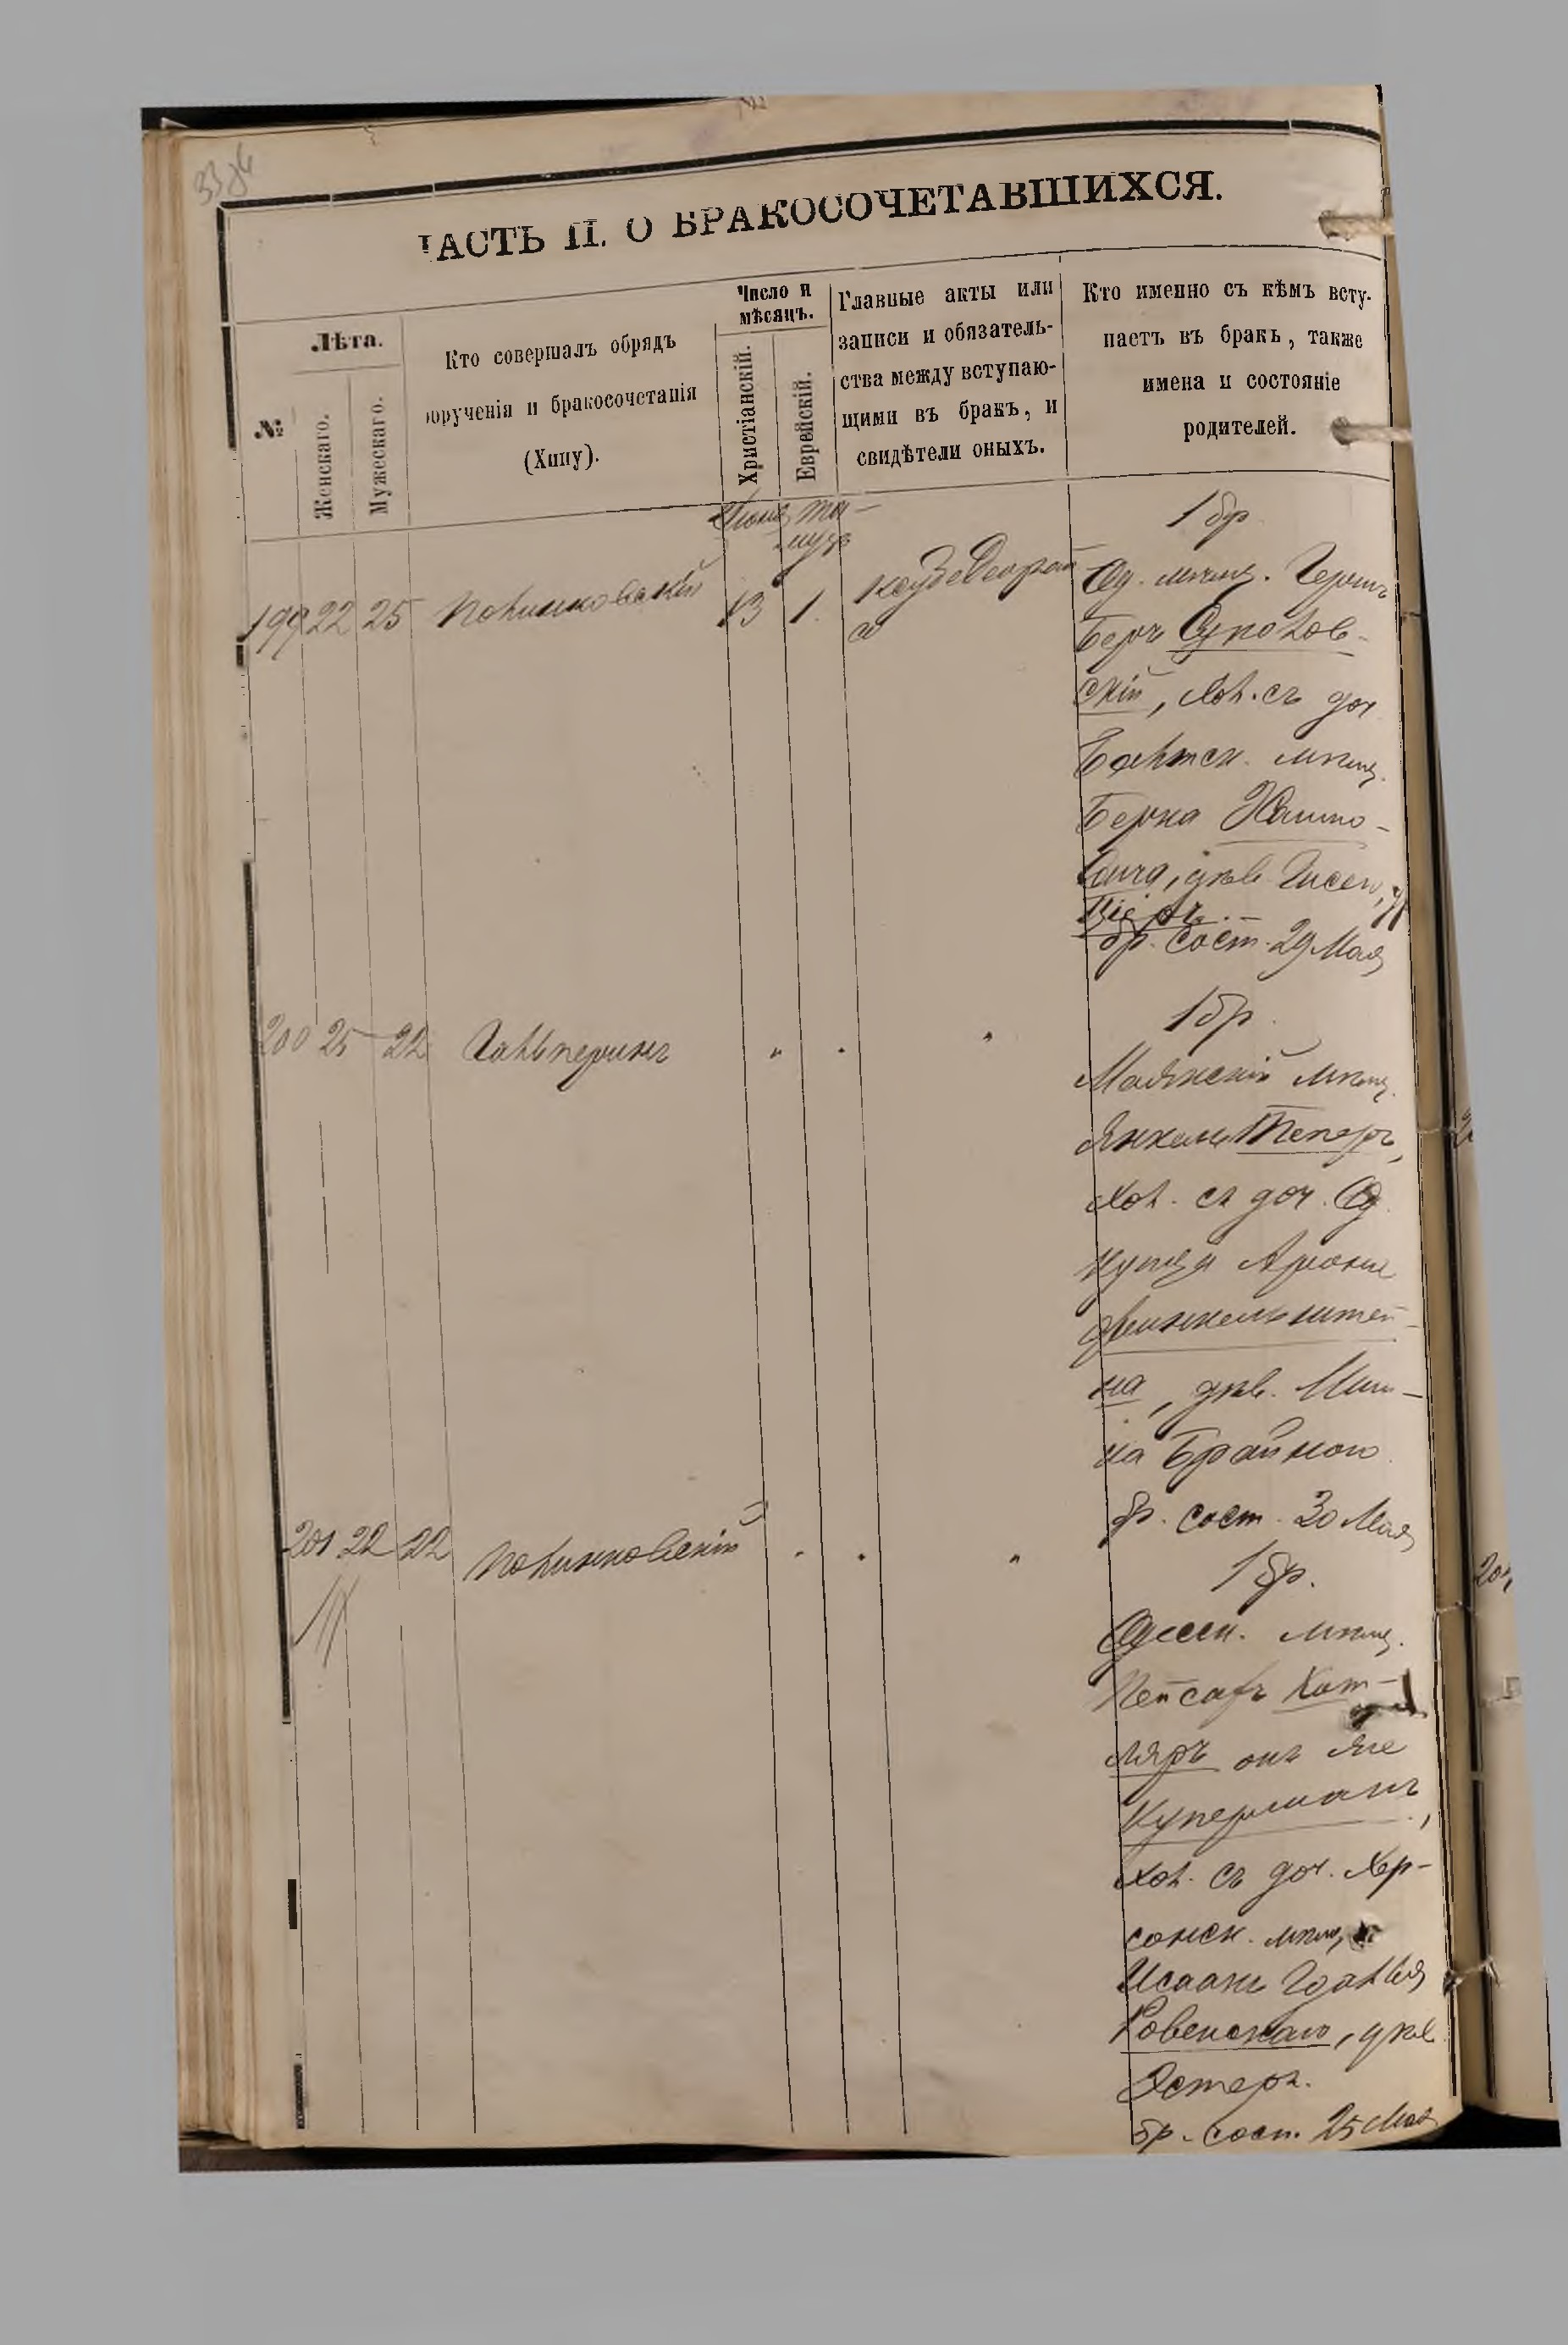 ЧАСТЬ II. О БРАКОСОЧЕТАВШИХСЯ.
№
Лѣта.
Женскаго.
Мужескаго.
Кто совершалъ обрядъ
обрученія и бракосочетанія
(Хипу).
Число и
мѣсяцъ.
Христіанскій.
Еврейскій.
Главные акты или
записи и обязатель-
ства между вступаю-
щими въ бракъ, и
свидѣтели оныхъ.
Кто именно съ кѣмъ всту-
паетъ въ бракъ, также
имена и состояніе
родителей.
199 22 25 Полинковскій 13 1.
1 бр.
Од. мѣщ. Гершъ
Беръ
скій, хол. съ доч
Балтск. мѣщ.
Берка
бр. сост. 29 Мая
200 25 22 Гальперинъ " " "
1 бр.
Маякскій мѣщ.
Янкель Теперъ,
хол. съ доч. Од.
купца Арона
Финкельштей-
на, дѣв.
бр. сост. 30 Мая
201 22 22 Полинковскій " " "
1 бр.
Одесск. мѣщ.
Пейсахъ Кот-
ляръ онъ же
Куперманъ,
хол. съ доч. Хер-
сонск. мѣщ.
Ровенскаго, дѣв.
Эстеръ.
бр. сост. 25 Мая